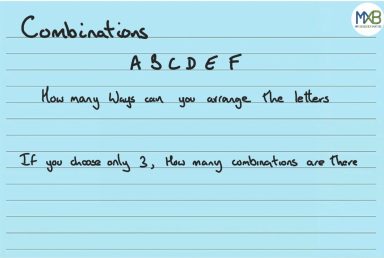 Combinations
MXB
A B C D E F
How many Ways can you arrange the letters
If you choose only 3, How many combinations are there